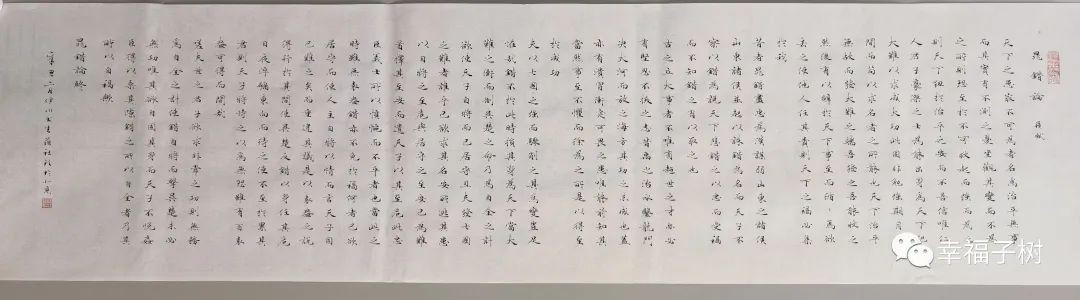 晁錯論
蘇軾
天下之患最不可為者名為治平無事
而其實有不測之憂坐觀其變而不為
之所則恐至於不可救起而強為之
則天下狃於治平之安而不吾信唯仁
人君子豪傑之士為能出身為天下犯
大難以求成大功此固非勉強期月之
間而苟以求名者之所能也天下治平
無故而發大難之端吾發之吾能收之
然後有以辭於天下事至而循循焉欲
去之使他人任其責則天下之禍必集
於我
昔者晁錯盡忠為漢謀弱山東之諸侯
山東諸侯並起以誅錯為名而天子不
察以錯為說天下悲錯之以忠而受禍
而不知錯之有以取之也
古之立大事者不唯有超世之才亦必
有堅忍不拔之志昔禹之治水鑿龍門
決大河而放之海方其功之未成也蓋
亦有潰冒衝突可畏之患唯能前知其
當然事至不懼而徐為之所是以得至
於成功
夫以七國之強而驟削之其為變豈足
怪哉錯不於此時捐其身為天下當大
難之衝而制吳楚之命乃為自全之計
欲使天子自將而己居守且夫發七國
之難者誰乎己欲求其名安所逃其患
以自將之至危與居守之至安己為難
首擇其至安而遺天子以其至危此忠
臣義士所以憤惋而不平者也當此之
時雖無袁盎錯亦不免於禍何者己欲
居守而使人主自將以情而言天子固
已難之矣而重違其議是以袁盎之說
得行於其間使吳楚反錯以身任其危
日夜淬礪東向而待之使不至於累其
君則天子將恃之以為無恐雖有百袁
盎可得而間哉
嗟夫世之君子欲求非常之功則無務
為自全之計使錯自將而擊吳楚未必
無功唯其欲自固其身而天子不悅奸
臣得以乘其隙錯之所以自全者乃其
所以自禍歟
晁錯論終
辛丑二月伊川書生
幸福子树